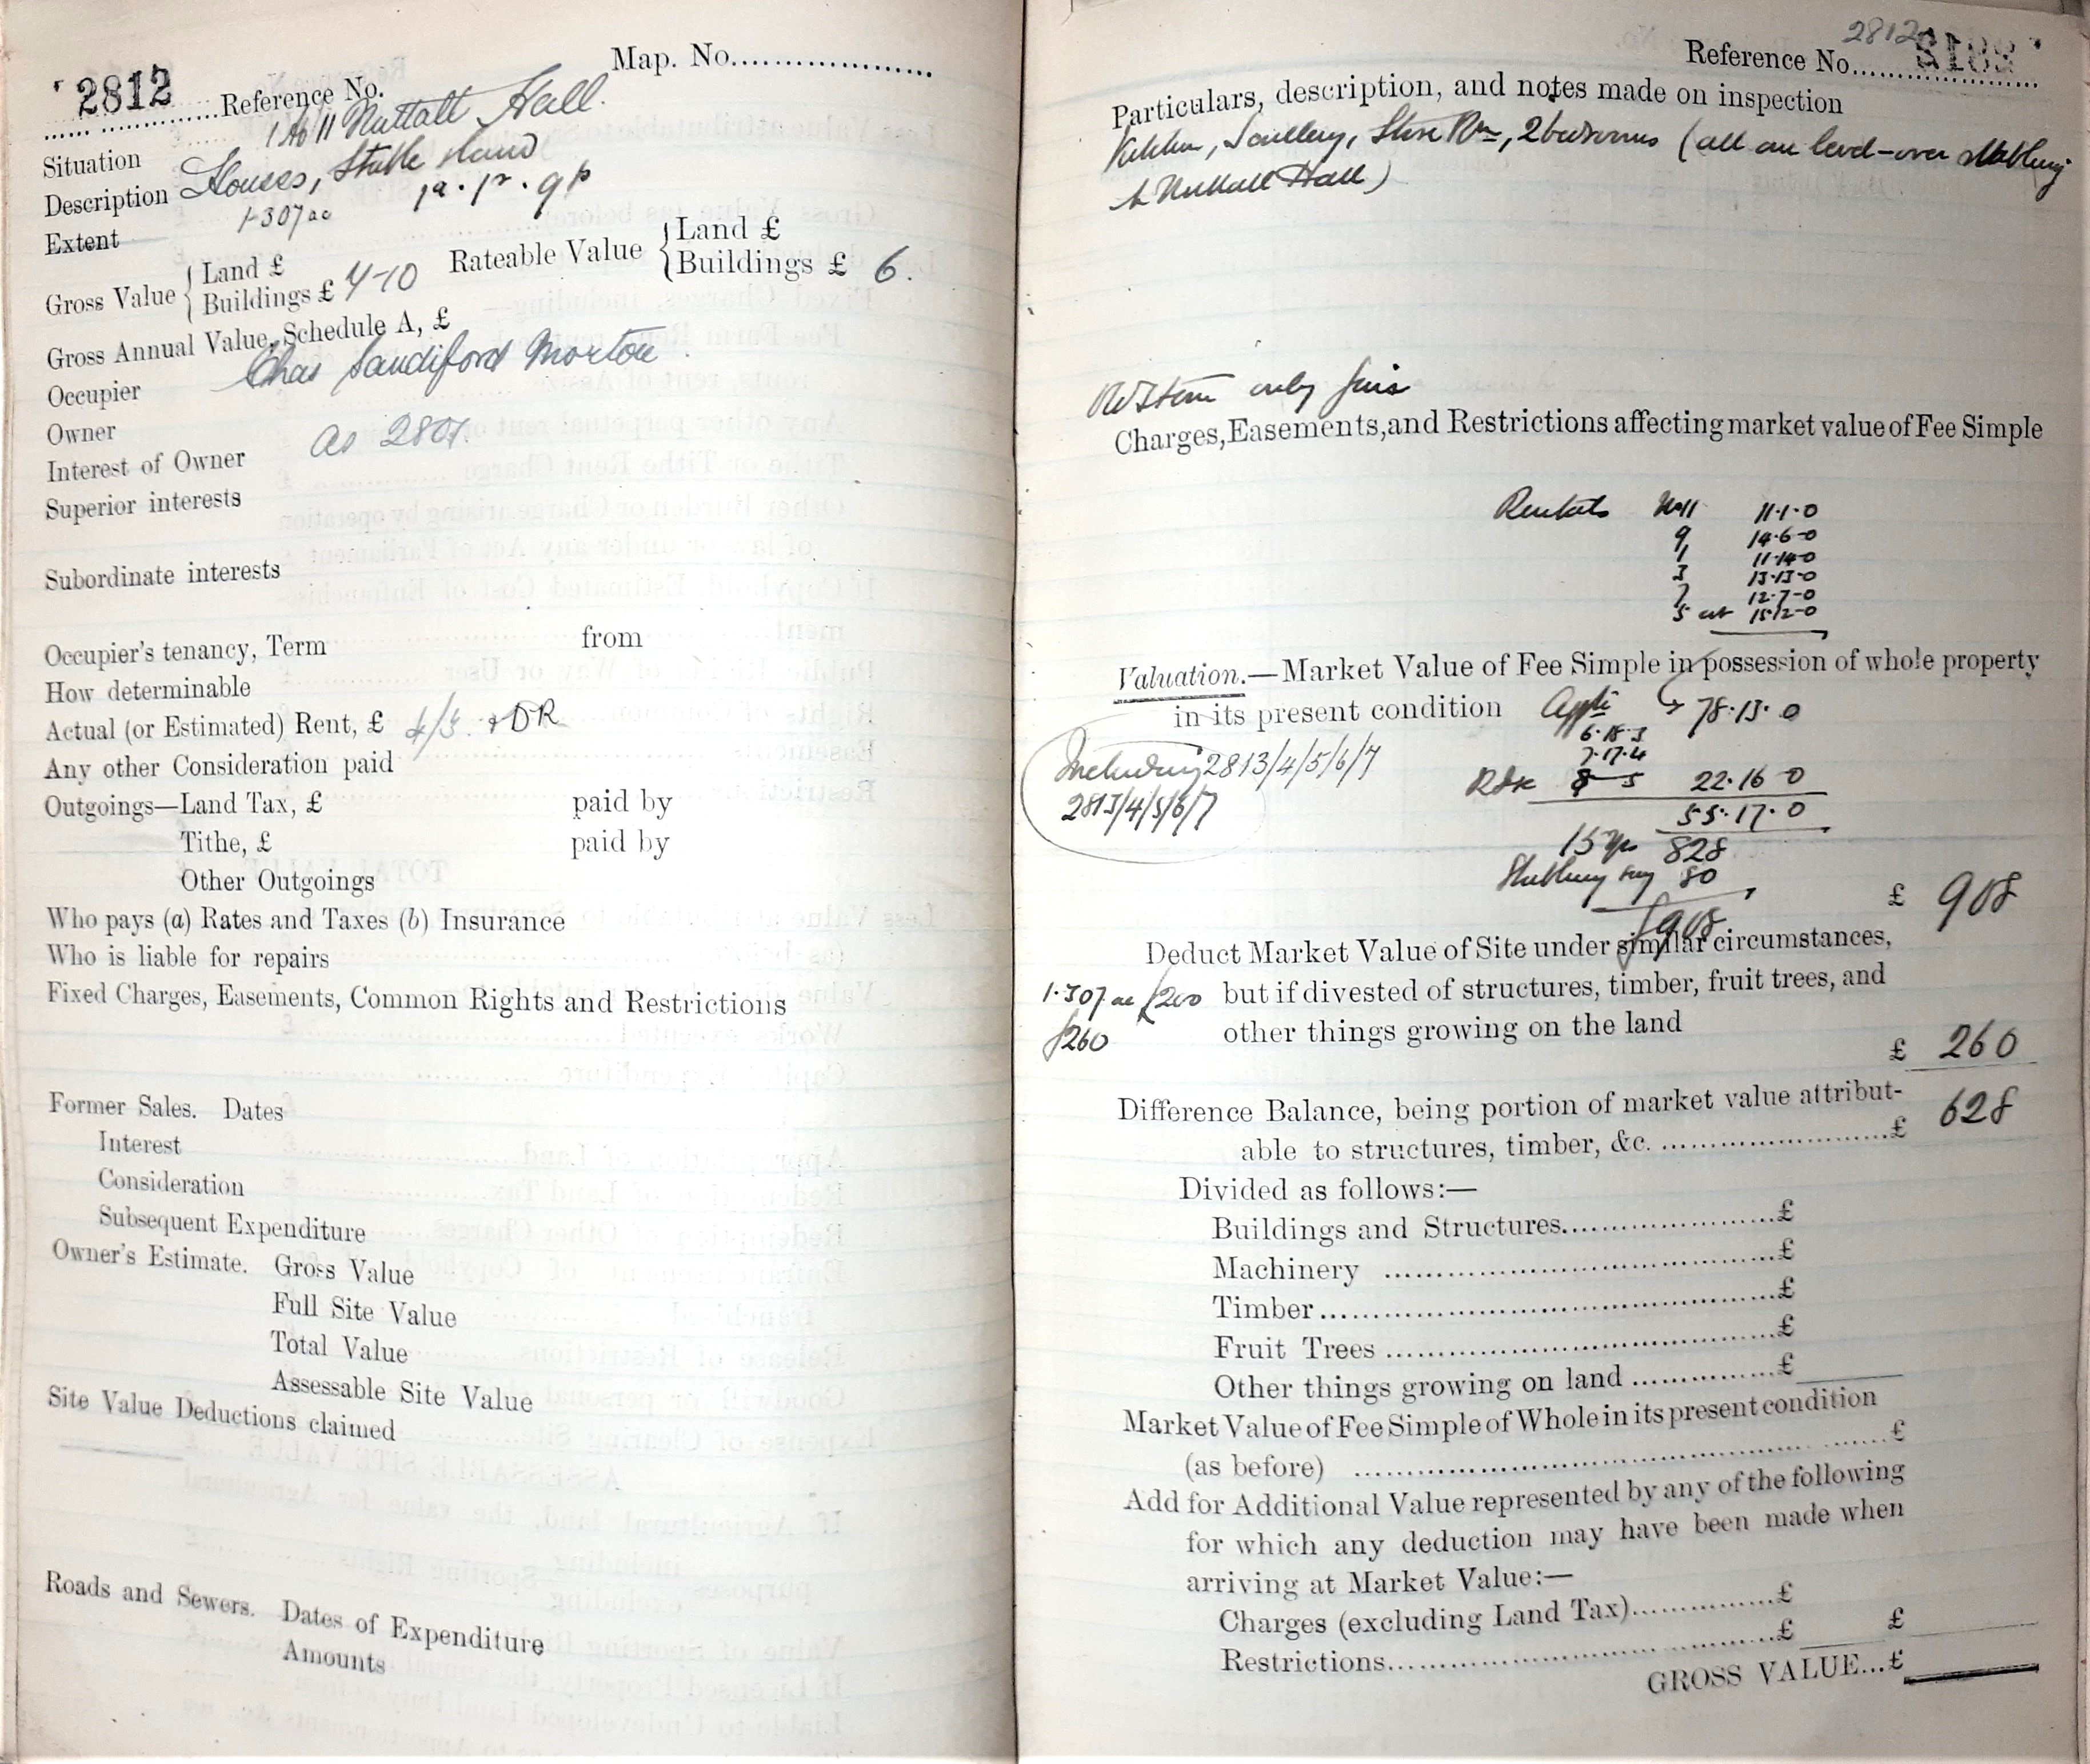 2812
Map. No.
Reference No.
1 to 11 Nuttall Hall.
Situation
Description Houses, Stable & land
1·307 ac 1a·1r·9p
Extent
Gross Value { Land £
Buildings £ 4-10
Rateable Value { Land £
Buildings £ 6.
Gross Annual Value, Schedule A, £
Occupier Chas Sandiford Morton
Owner
Interest of Owner as 2807.
Superior interests
Subordinate interests
Occupier's tenancy, Term from
How determinable
Actual (or Estimated) Rent, £ 4/3. + DR
Any other Consideration paid
Outgoings—Land Tax, £ paid by
Tithe, £ paid by
Other Outgoings
Who pays (a) Rates and Taxes (b) Insurance
Who is liable for repairs
Fixed Charges, Easements, Common Rights and Restrictions
Former Sales. Dates
Interest
Consideration
Subsequent Expenditure
Owner's Estimate. Gross Value
Full Site Value
Total Value
Assessable Site Value
Site Value Deductions claimed
Roads and Sewers. Dates of Expenditure
Amounts
2812
Reference No.
Particulars, description, and notes made on inspection
Kitchen, Scullery, Store Rm, 2 bedrooms (all on level - over Stabling
to Nuttall Hall)
only fair
Charges, Easements, and Restrictions affecting market value of Fee Simple
Rentals No 11 11·1·0
9 14·6·0
1 11·14·0
3 13·13·0
7 12·7·0
5 at 15·12·0
Valuation.—Market Value of Fee Simple in possession of whole property
in its present condition 78·13·0
6·18·3
7·17·4
Including 2813/4/5/6/7
8 5 22·16·0
2813/4/5/6/7
55·17·0
15 yps 828
Stabling say 80
£908
£ 908
Deduct Market Value of Site under similar circumstances,
1·307 ac £200 but if divested of structures, timber, fruit trees, and
£260 other things growing on the land
£ 260
Difference Balance, being portion of market value attribut-
able to structures, timber, &c. £ 628
Divided as follows:—
Buildings and Structures £
Machinery £
Timber £
Fruit Trees £
Other things growing on land £
Market Value of Fee Simple of Whole in its present condition
(as before) £
Add for Additional Value represented by any of the following
for which any deduction may have been made when
arriving at Market Value:—
Charges (excluding Land Tax) £
Restrictions £ £
GROSS VALUE...£